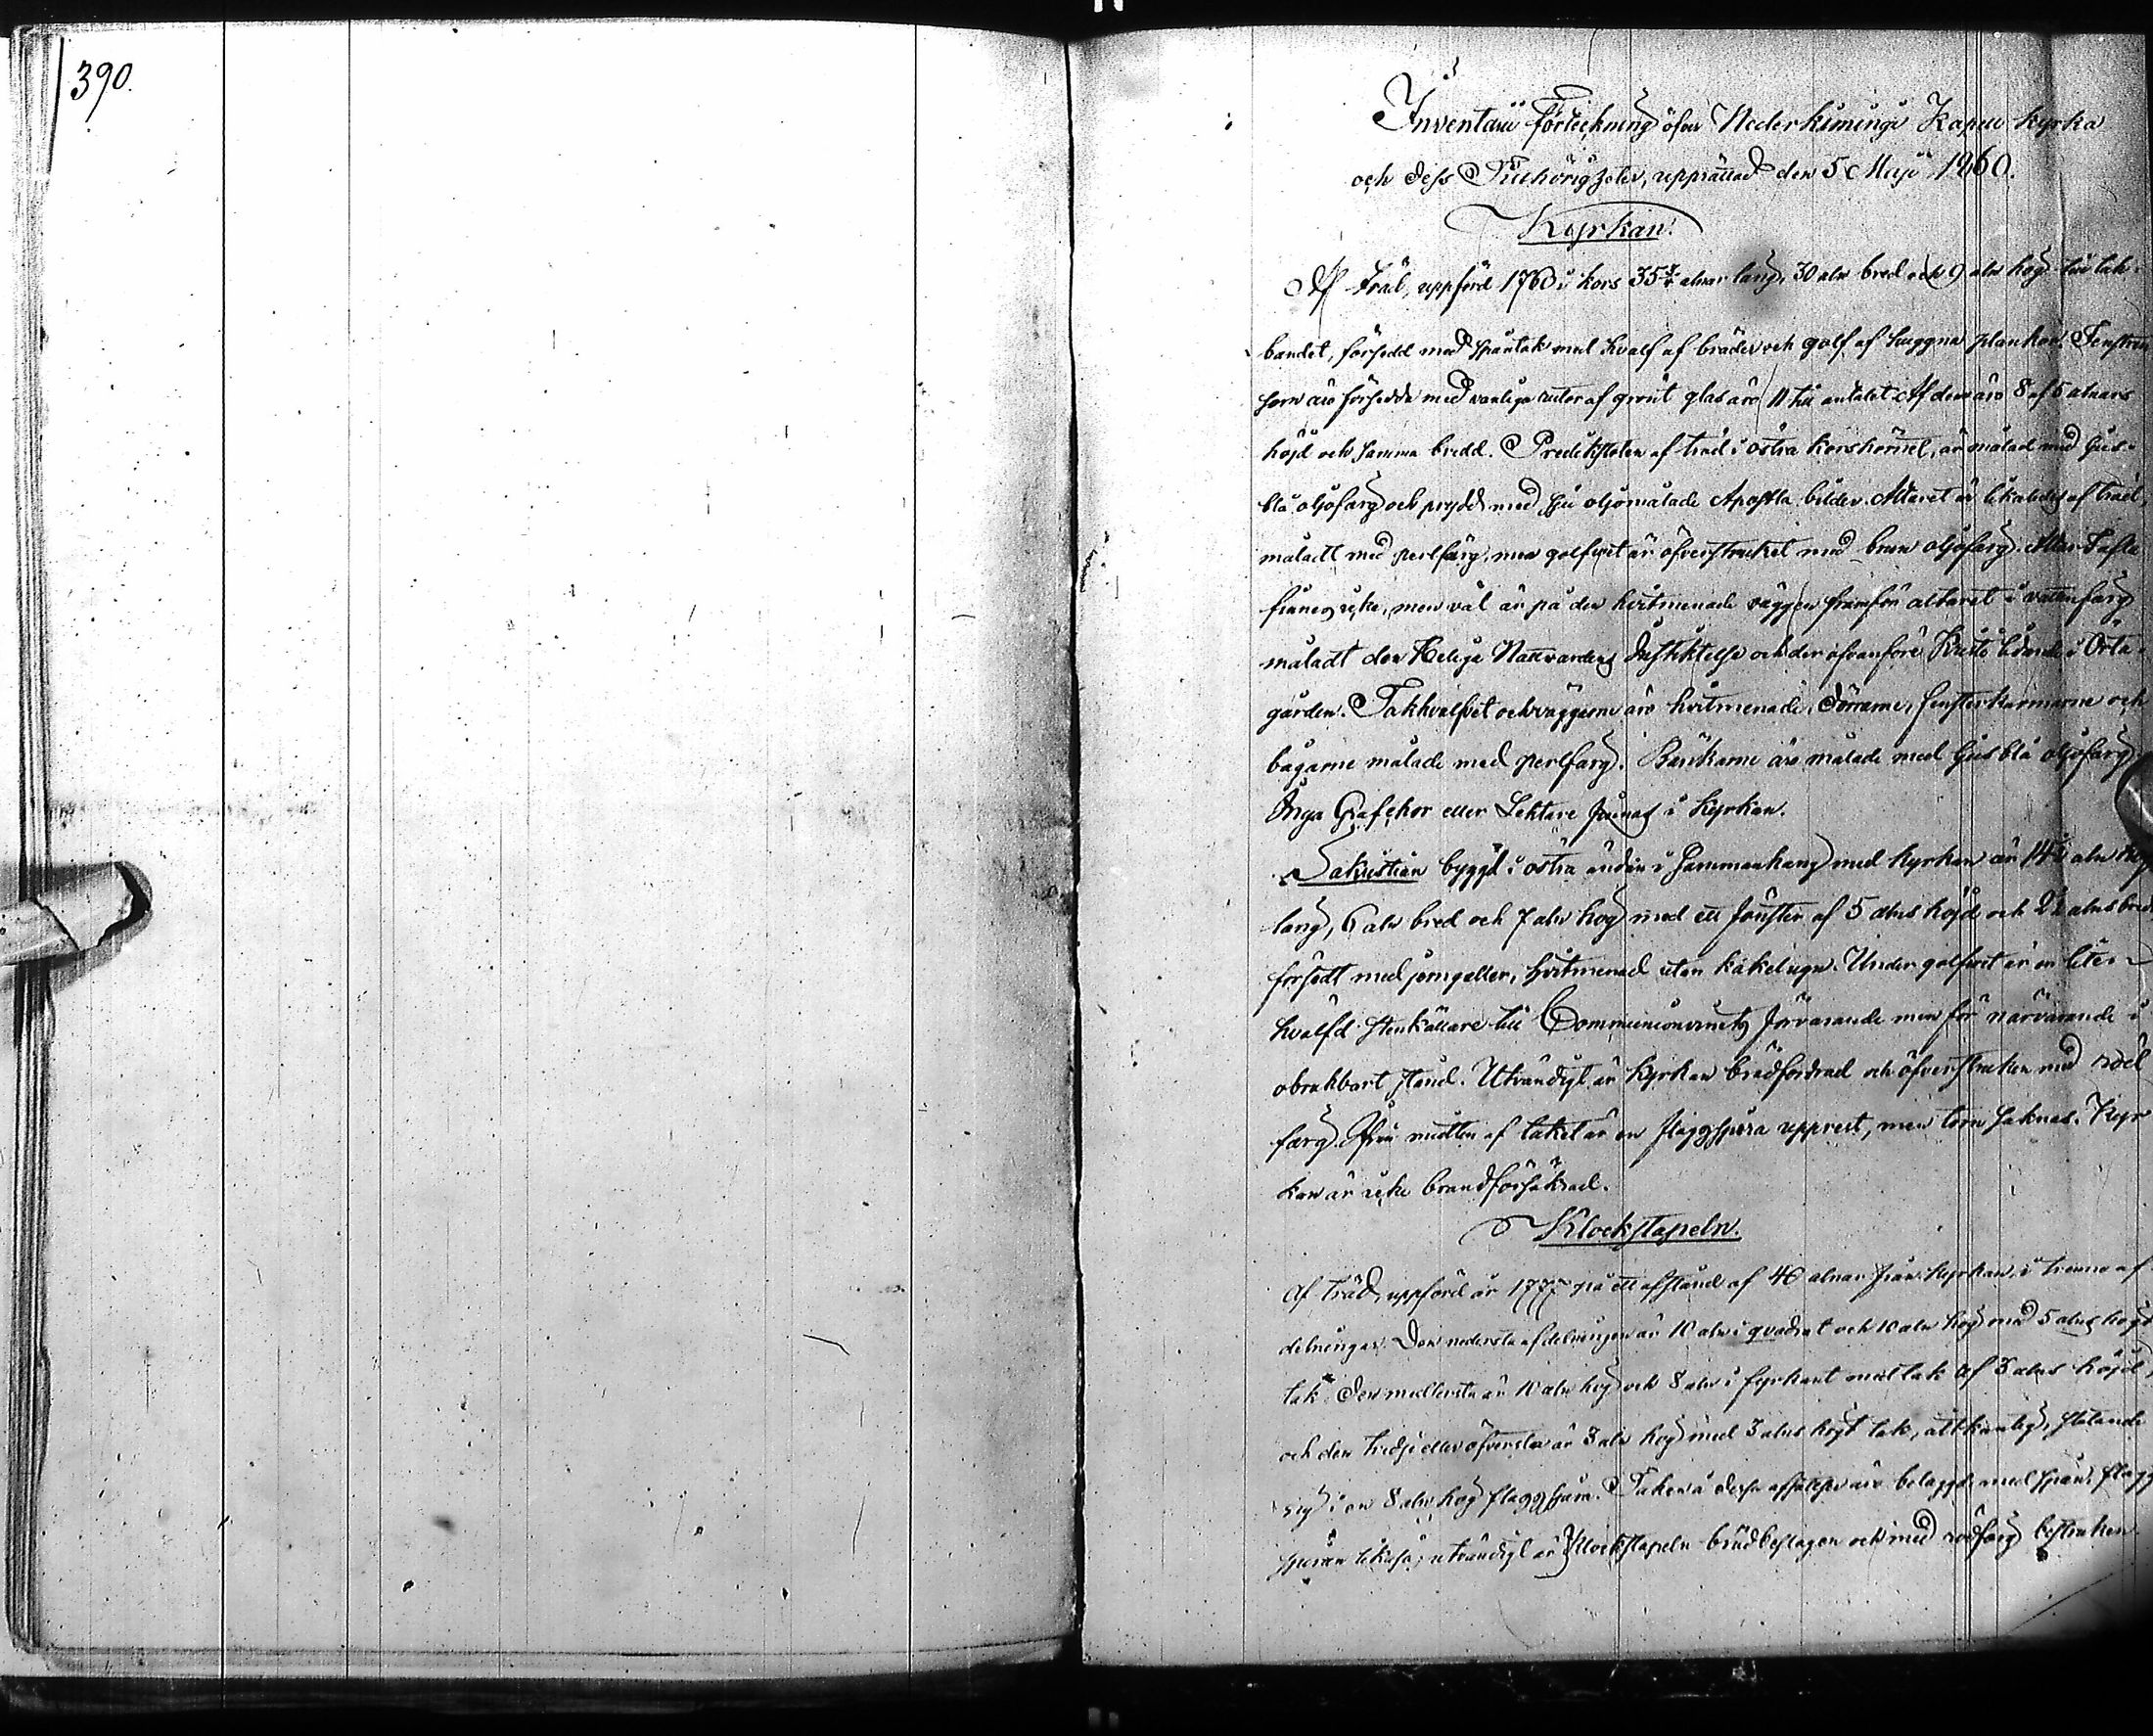 390.
Inventarii förteckning öfver Nederkiminge Kapell kyrka
och dess Tillhörigheter, upprättad den 5 Maji 1860.
Kyrkan.
Af Träd, uppförd 1760 i kors 35 alnar lång, 30 aln bred och 9 aln hög till tak-
bandet, försedd med spåntak med hvalf af bräder och golf af huggna plankor. Fenstren
som äro försedde med vanliga rutor af grönt glas äro 11 till antalet. Af dem äro 8 af 5 alnars
höjd och samma bredd. Predikstolen af träd i östra korshörnet, är målad med ljus-
blå oljofärg och prydd med sju oljomålade Apostla bilder. Altaret är likaledes af träd,
måladt med perlfärg, men golfvet är öfverstruket med brun oljofärg. Altar Tafla
finnes icke, men väl är på den hvitmenade väggen framför altaret i vattenfärg
måladt den Heliga Nattvardens Instiktelse och der ofvanföre Kristi lidande i Örta-
gården. Takhvalfvet och väggarne äro hvitmenade, Dörrarne, fensterkarmarne och
bågarne målade med perlfärg. Bänkarne äro målade med ljusblå oljofärg.
Inga Grafchor eller Lektare finnas i Kyrkan.
Sakristian byggd i östra ändan i sammanhang med kyrkan är 14½ aln
lång, 6 aln bred och 7 aln hög med ett fönster af 5 alns höjd och 2½ alns bred
försedt med jerngaller, hvitmenad utan kakelugn. Under golfvet är en liten
hvälfd stenkällare till Communionvinets förvarande men för närvarande i
obrukbart stånd. Utvändigt är kyrkan brädfodrad och öfverstruken med röd
färg. På midten af taket är en flaggspira upprest, men torn saknas. Kyr-
kan är icke brandförsäkrad.
Klockstapeln.
Af träd, uppförd år 1777 på ett afstånd af 40 alnar från Kyrkan, i trenne af-
delningar. Den nedersta afdelningen är 10 aln i qvadrat och 10 aln hög med 5 alns högt
tak. Den medlersta är 10 aln hög och 8 aln i fyrkant med tak af 3 alns höjd,
och den tredje eller öfversta är 3 aln hög med 3 alns högt tak, åttkantig, slutande
sig i en 8 aln hög flaggspira. Taken å dessa afsatser äro belagde med spån, flagg-
spiran likaså; utvändigt är Klockstapeln brädbeslagen och med rödfärg bestruken.